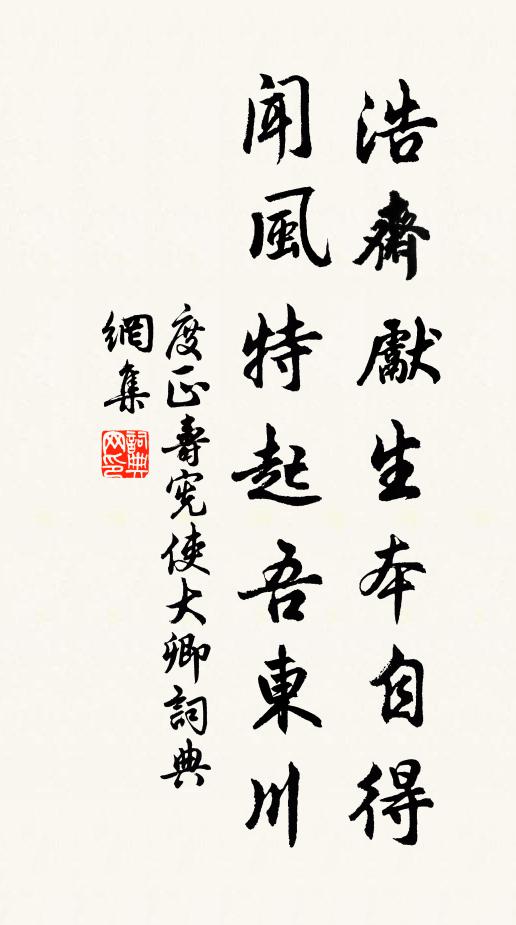 浩齋獻生本自得
聞風特起吾東川
度正壽宪使大卿詞典
網集
詞典网印